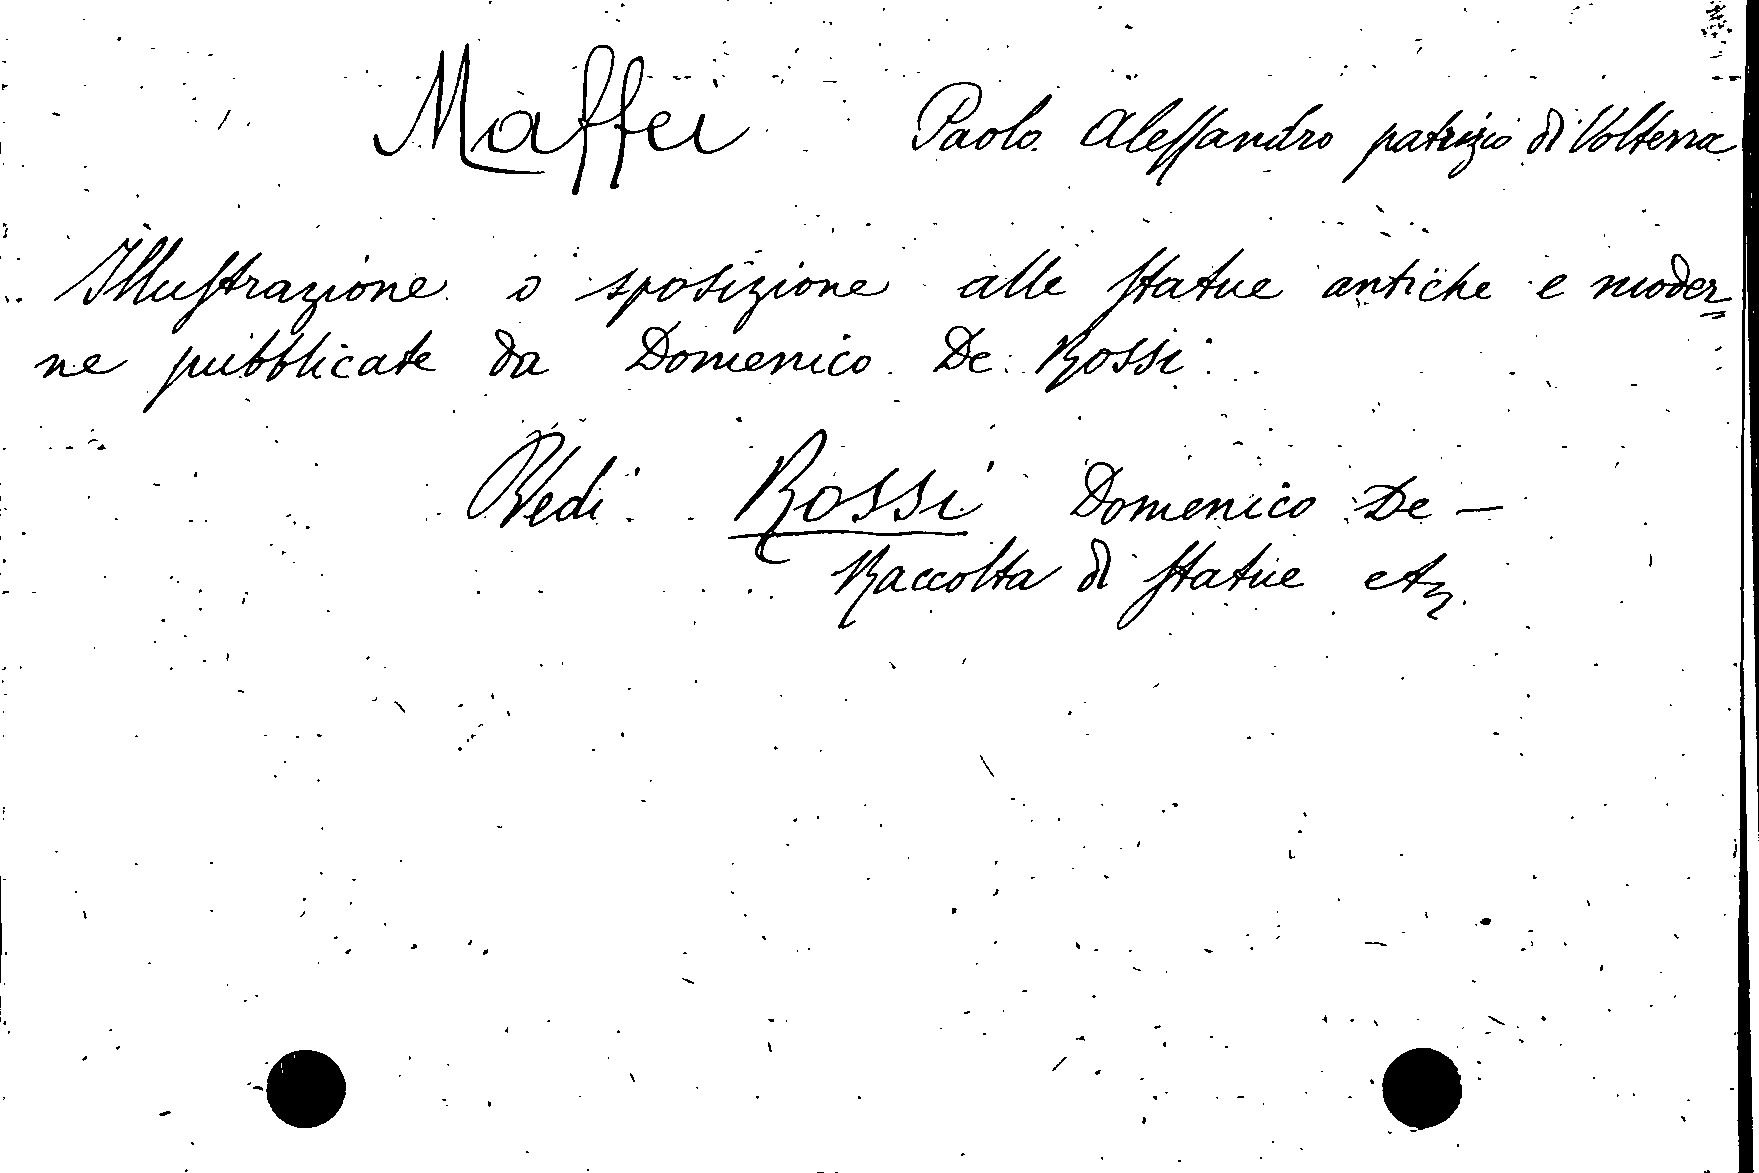 Maffei Paolo Alessandro patrizio di Volterra
Illustrazione o sposizione alle statue antiche e moder=
ne pubblicate da Domenico De Rossi.
Vedi Rossi Domenico De —
Raccolta di statue etz.